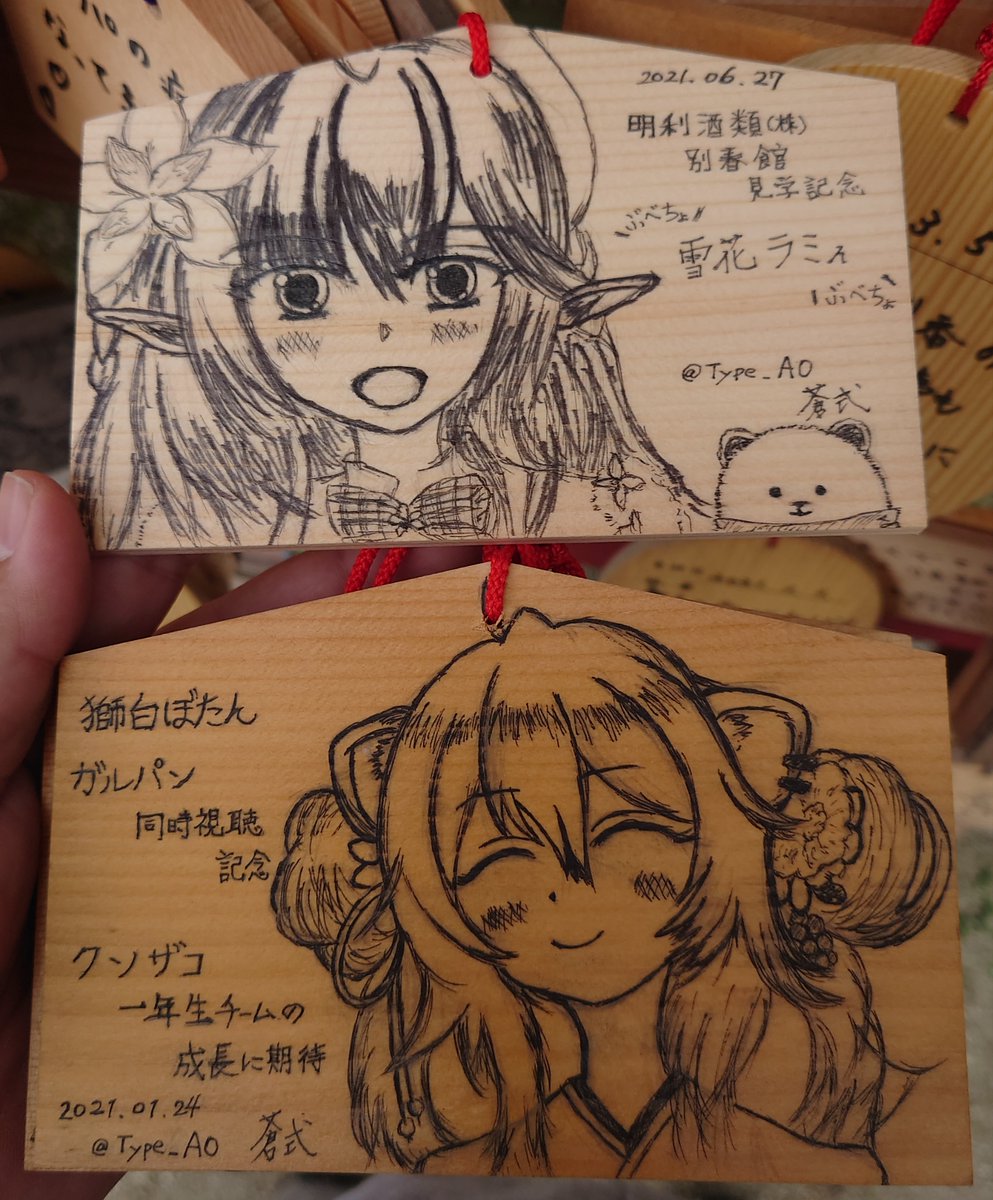 2021.06.27
明利酒類(株)
別春館
見学記念
ぶべちょ!!
雪花ラミィ
ぶべちょ
@Type_AO
蒼式
獅白ぼたん
ガルパン
同時視聴
記念
クソザコ
一年生チームの
成長に期待
2021.01.24
@Type_AO 蒼式